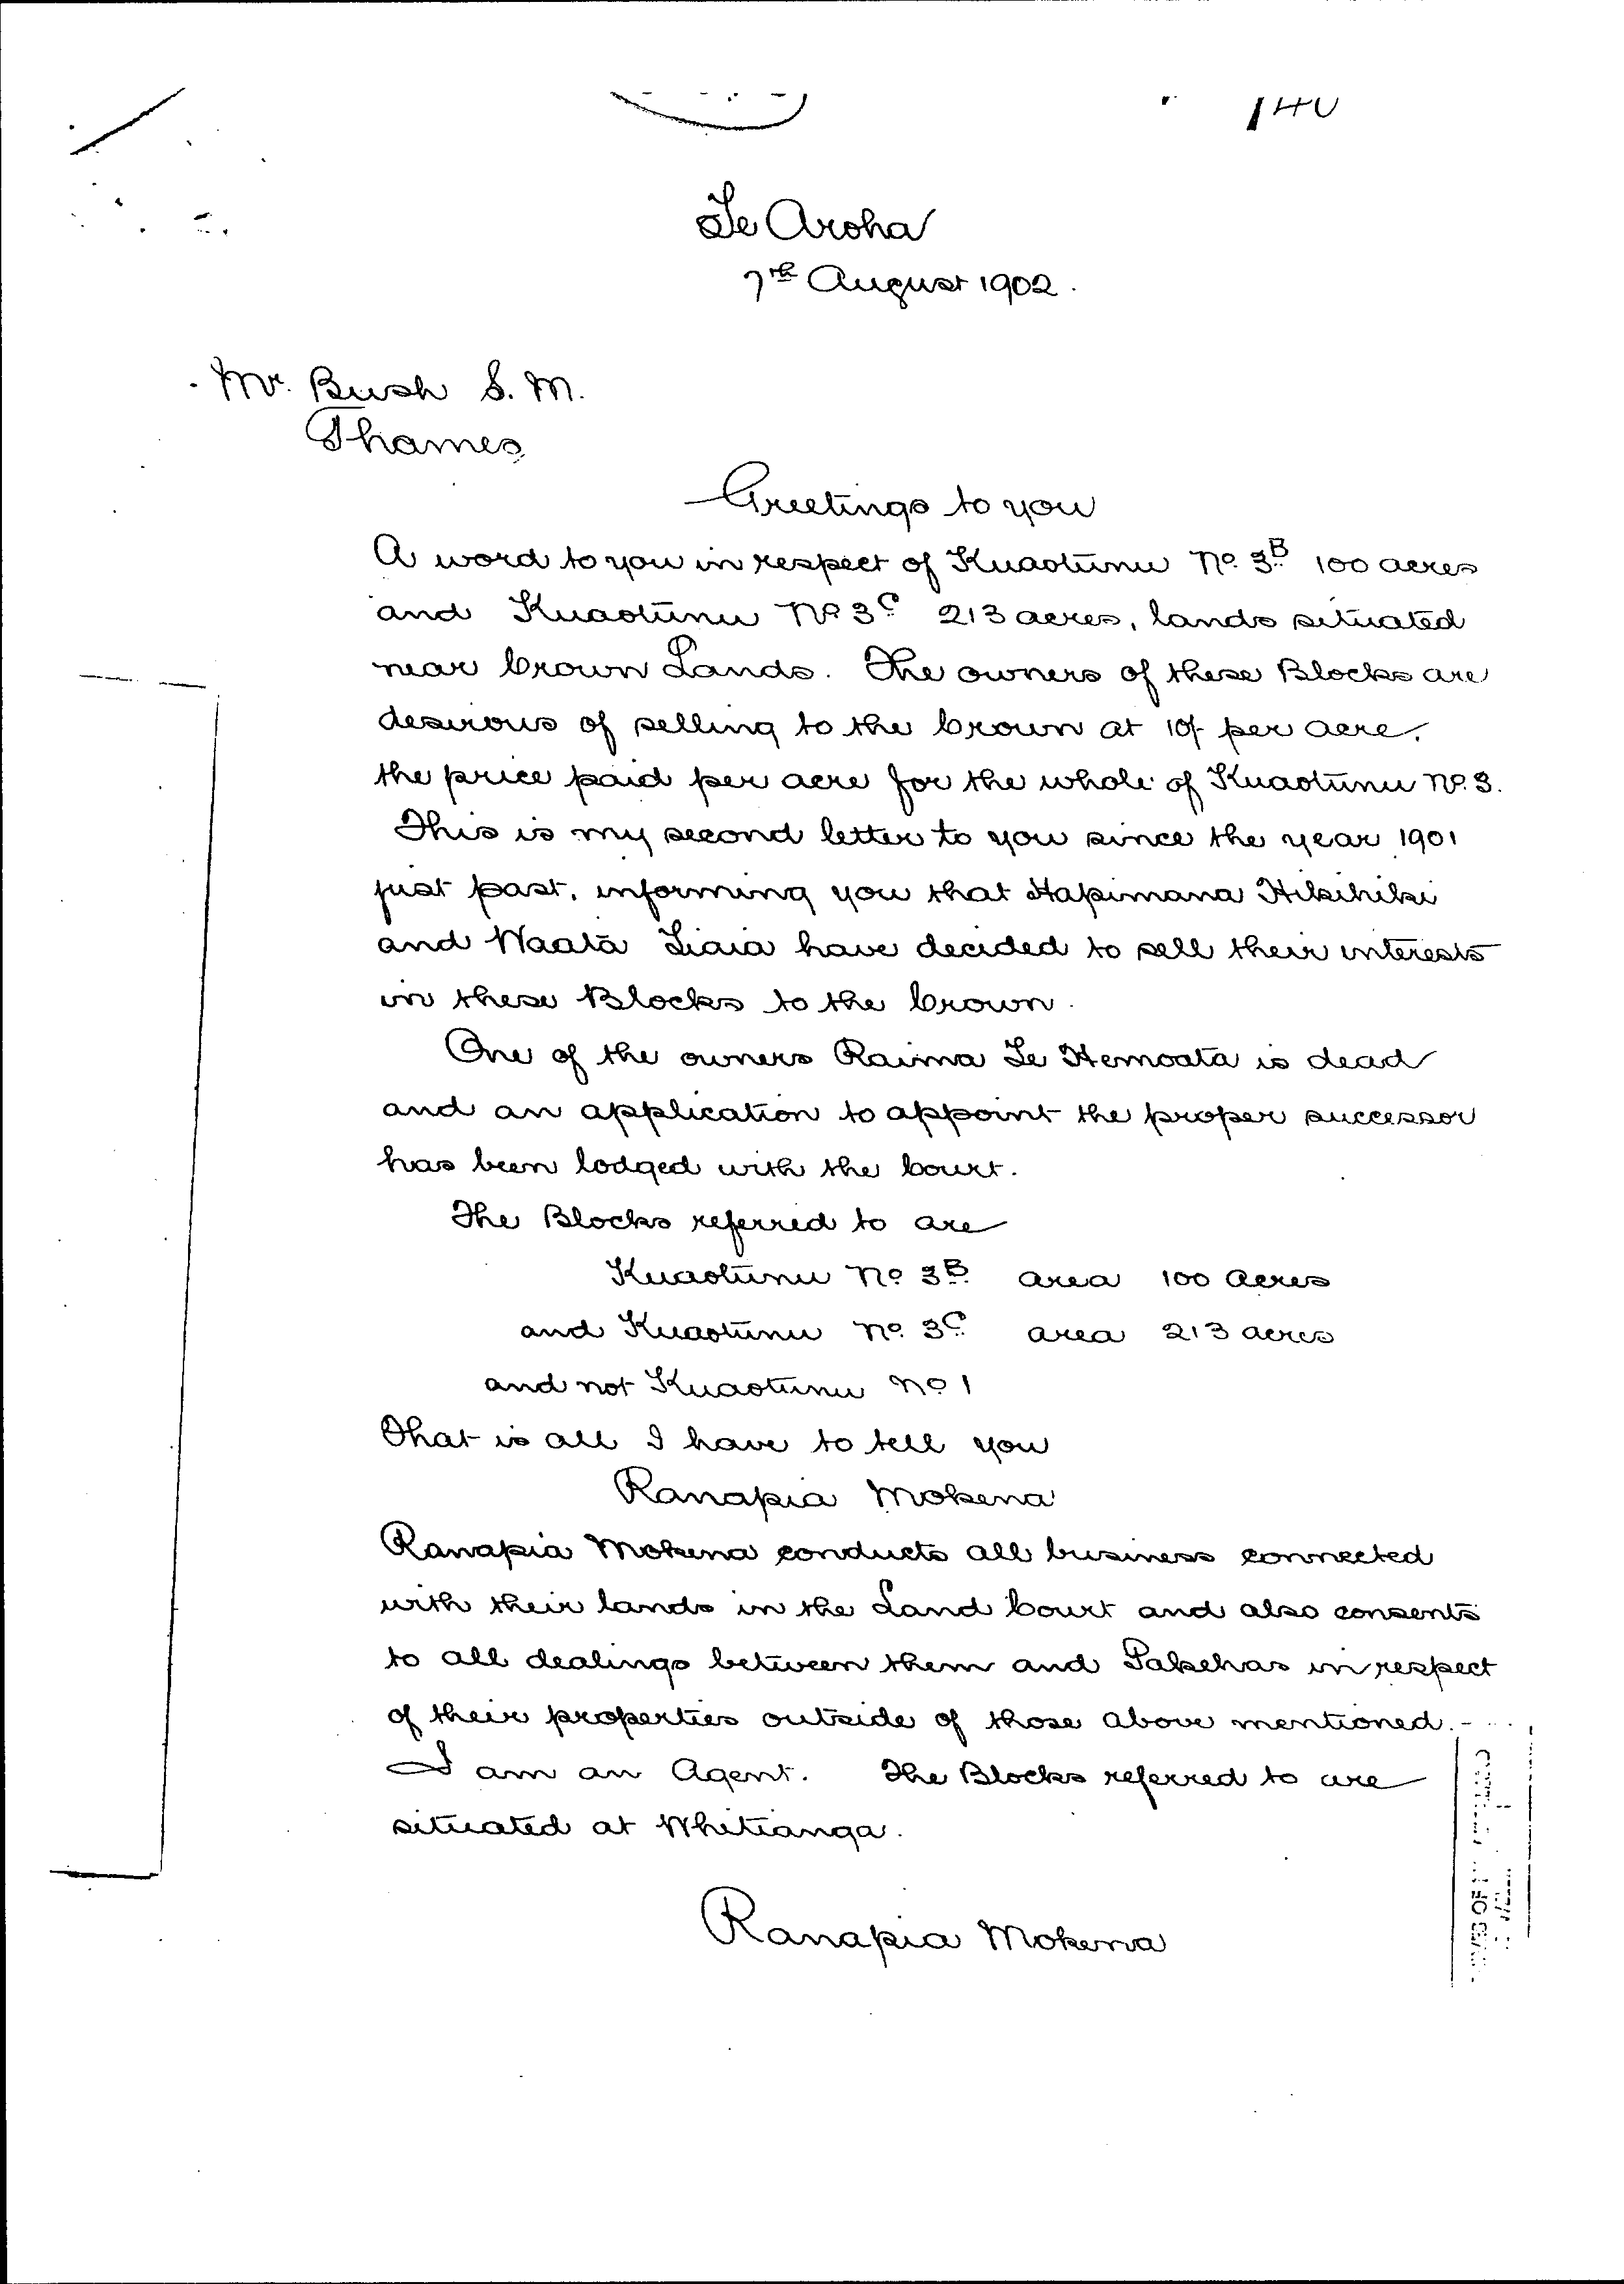 140
Te Aroha
7th August 1902.
Mr. Bush S. M.
Thames
Greetings to you
A word to you in respect of Kuaotunu No. 3B 100 acres
and Kuaotunu No 3C 213 acres, lands situated
near Crown Lands. The owners of these Blocks are
desirous of selling to the Crown at 10/- per acre.
the price paid per acre for the whole of Kuaotunu No. 3.
This is my second letter to you since the year 1901
just past, informing you that Hapimana Hikihiki
and Waata Tiaia have decided to sell their interests
in these Blocks to the Crown.
One of the owners Raima Te Hemoata is dead
and an application to appoint the proper successor
has been lodged with the Court.
The Blocks referred to are
Kuaotunu No 3B area 100 acres
and Kuaotunu No. 3C area 213 acres
and not Kuaotunu No 1
That is all I have to tell you
Ranapia Mokena
Ranapia Mokena conducts all business connected
with their lands in the Land Court and also consents
to all dealings between them and Pakehas in respect
of their properties outside of those above mentioned.
I am an Agent. The Blocks referred to are
situated at Whitianga.
Ranapia Mokena